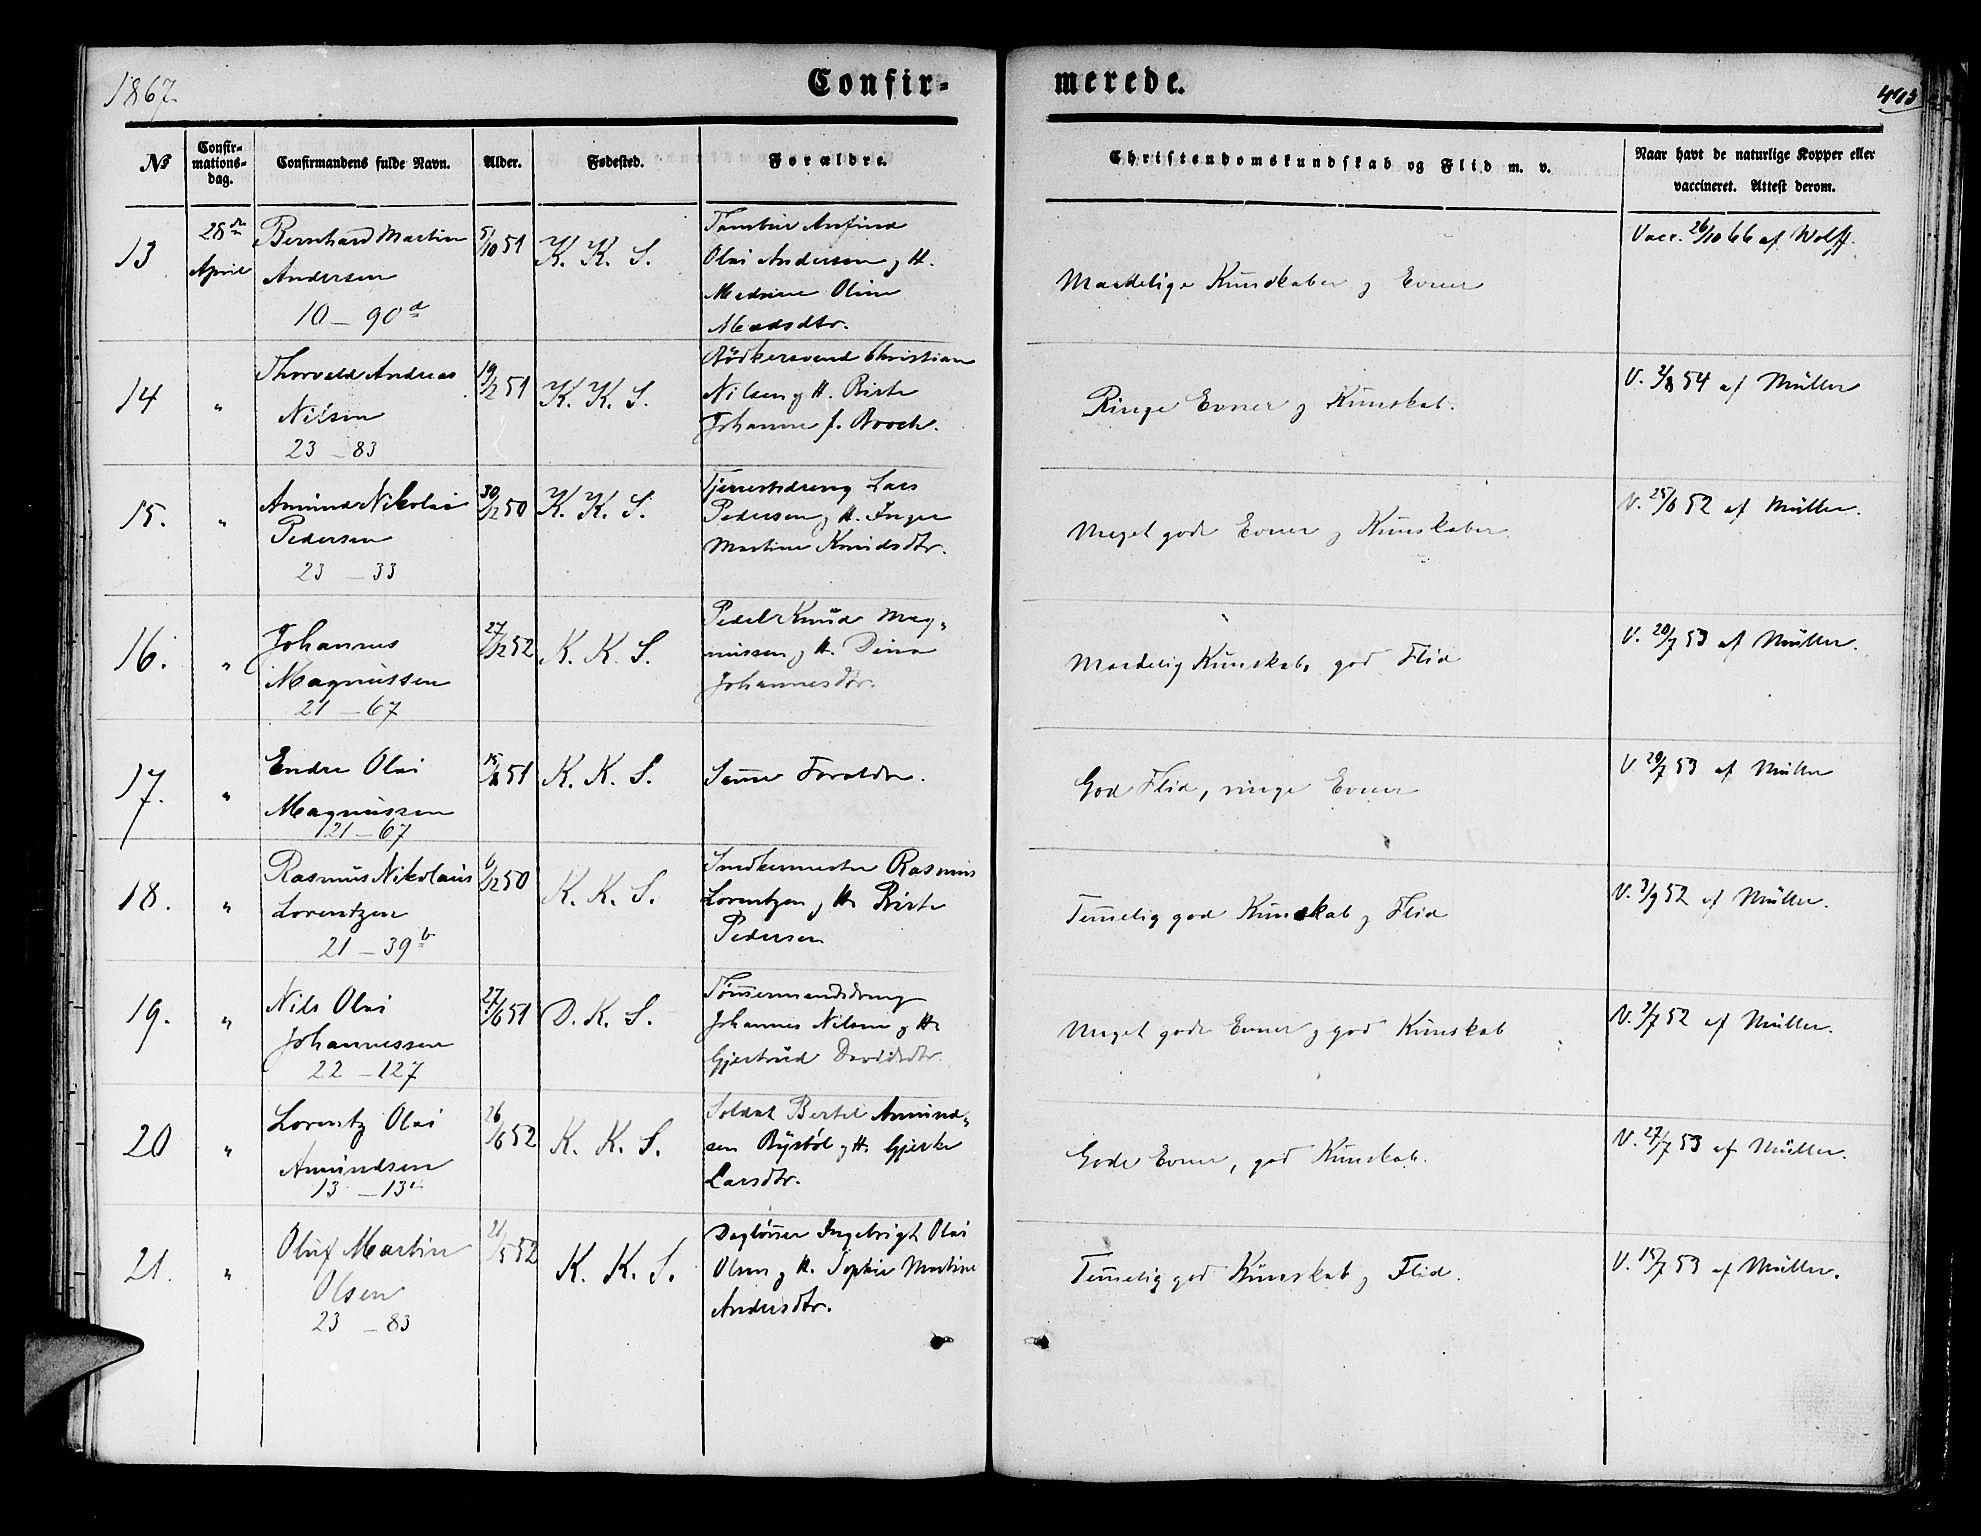 1867.
Confir-
merede.
493
No
Confir-
mations-
dag.
Confirmandens fulde Navn.
Alder.
Fødested.
Forældre.
Christendomskundskab og Flid m. v.
Naar havt de naturlige Kopper eller
vaccineret. Attest derom.
13
28de
April
Bernhard Martin
Andersen
10 – 90 a
5/10 51
K. K. S.
Tambur Anfind
Olai Andersen og H.
Madsine Oline
Madsdtr.
Maadelige Kundskaber og Evner
Vacc. 26/10 66 af Wolff.
14
"
Thorvald Andreas
Nilsen
23 – 83
19/12 51
K. K. S.
Bødkersvend Christian
Nilsen og H. Birte
Johanne f. Broch.
Ringe Evner og Kunskab.
V. 2/8 54 af Müller
15.
"
Amund Nikolai
Pedersen
23 – 33
30/12 50
K. K. S.
Tjenestedreng Lars
Pedersen og H. Inger
Martine Knudsdtr.
Meget gode Evner og Kunskaber.
V. 25/6 52 af Müller.
16.
"
Johannes
Magnussen
21 – 67
27/12 52
K. K. S.
Pedel Knud Mag-
nussen og H. Dina
Johannesdtr.
Maadelig Kunskab, god Flid
V. 20/7 53 af Müller.
17.
"
Endre Olai
Magnussen
21 – 67
15/8 51
K. K. S.
Samme Forældre.
God Flid, ringe Evner
V. 20/7 53 af Müller
18.
"
Rasmus Nikolaus
Lorentzen
21 – 39 b
6/12 50
K. K. S.
Snedkermester Rasmus
Lorentzen og H. Birte
Pedersen
Temmelig god Kunskab og Flid
V. 3/9 52 af Müller.
19.
"
Nils Olai
Johannessen
22 – 127
27/6 51
D. K. S.
Tømmermandsdreng
Johannes Nilsen og H.
Gjertrud Davidsdtr.
Meget gode Evner og god Kunskab
V. 2/7 52 af Müller.
20
"
Lorentz Olai
Amundsen
13 – 13
26/6 52
K. K. S.
Soldat Bertel Amund-
sen og H. Gjertr
Larsdtr.
Gode Evner, god Kunskab.
V. 27/7 53 af Müller.
21.
"
Oluf Martin
Olsen
23 – 83
21/5 52
K. K. S.
Dagløner Ingebrigt Olai
Olsen og H. Sophie Martine
Andersdtr.
Temmelig god Kunskab og Flid.
V. 15/7 53 af Müller.